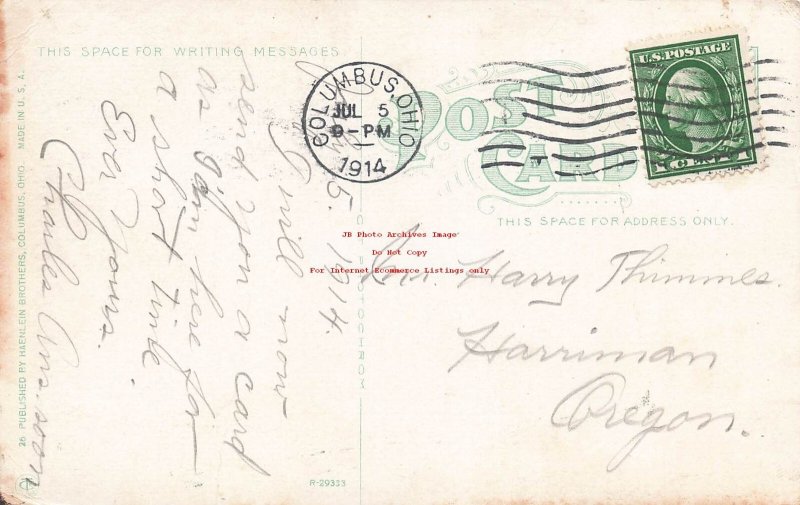 THIS SPACE FOR WRITING MESSAGES
5. 1914.
I will now
send you a card
as I am here for
a short time
Ever Yours.
Charles Ans. soon
26 PUBLISHED BY HAENLEIN BROTHERS, COLUMBUS, OHIO. MADE IN U.S.A.
COLUMBUS, OHIO
JUL 5
9-PM
1914
POST
CARD
U.S. POSTAGE
1 CENT 1
THIS SPACE FOR ADDRESS ONLY.
JB Photo Archives Image
Do Not Copy
For Internet Ecommerce Listings only
Harry Thimmes.
Harriman
Oregon.
R-29333